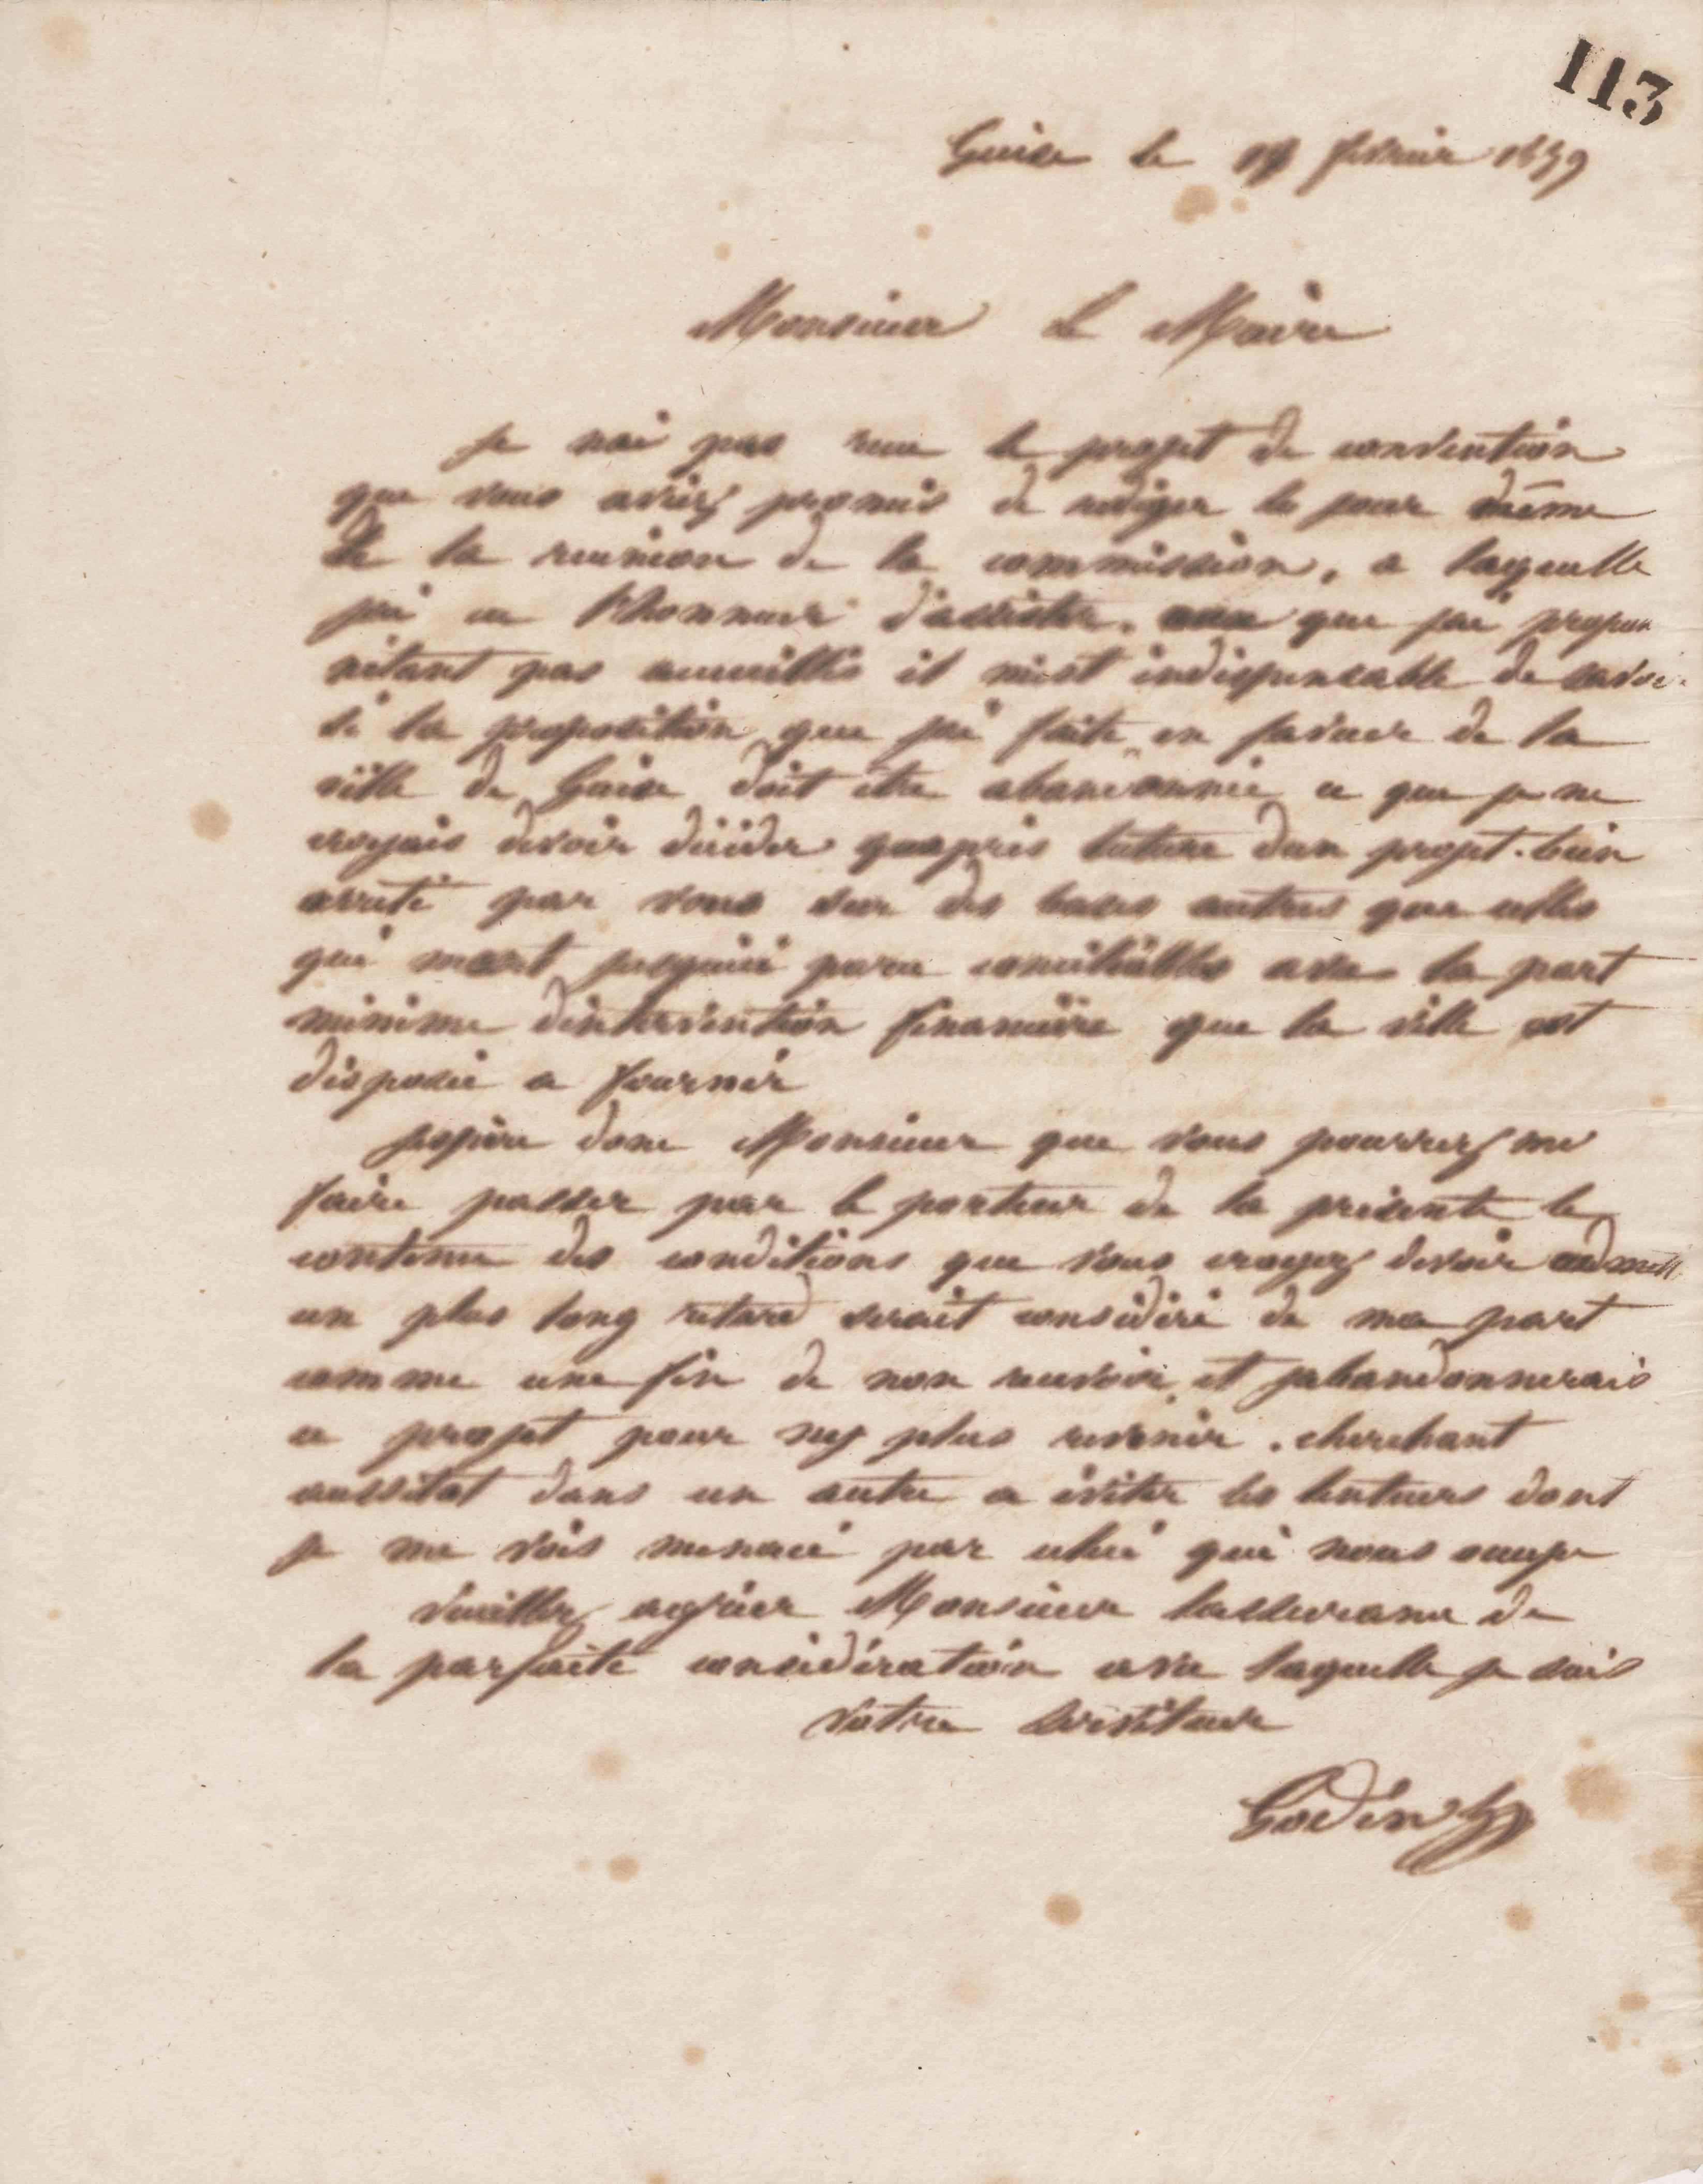 113
Guise le février 1859
Monsieur Le Maire
Je nai pas recu le projet de convention
que vous aviez promis de rediger le jour même
de la reunion de la commission, a laquelle
jai eu lhonneur dassister. que jai propose
nétant pas accueillis il mest indispensable de savoir
si la proposition que jai faite en faveur de la
ville de Guise doit etre abandonnée ce que je ne
croyais devoir décider quapres lecture dun projet bien
arrété par vous sur des bases autres que celles
qui mont jusquici paru conciliables avec la part
minime dintervention financière que la ville est
disposée a fournir
jespère donc Monsieur que vous pourrez me
faire passer par le porteur de la présente le
contenu des conditions que vous croyez devoir admett
un plus long retard serait considéré de ma part
comme une fin de non recevoir et jabandonnerais
ce projet pour ny plus revenir. cherchant
aussitot dans un autre a éviter les lenteurs dont
je me vois menacé par celui qui nous occupe
Veuillez agréer Monsieur lassurance de
la parfaite considération avec laquelle je suis
votre serviteur
Godin